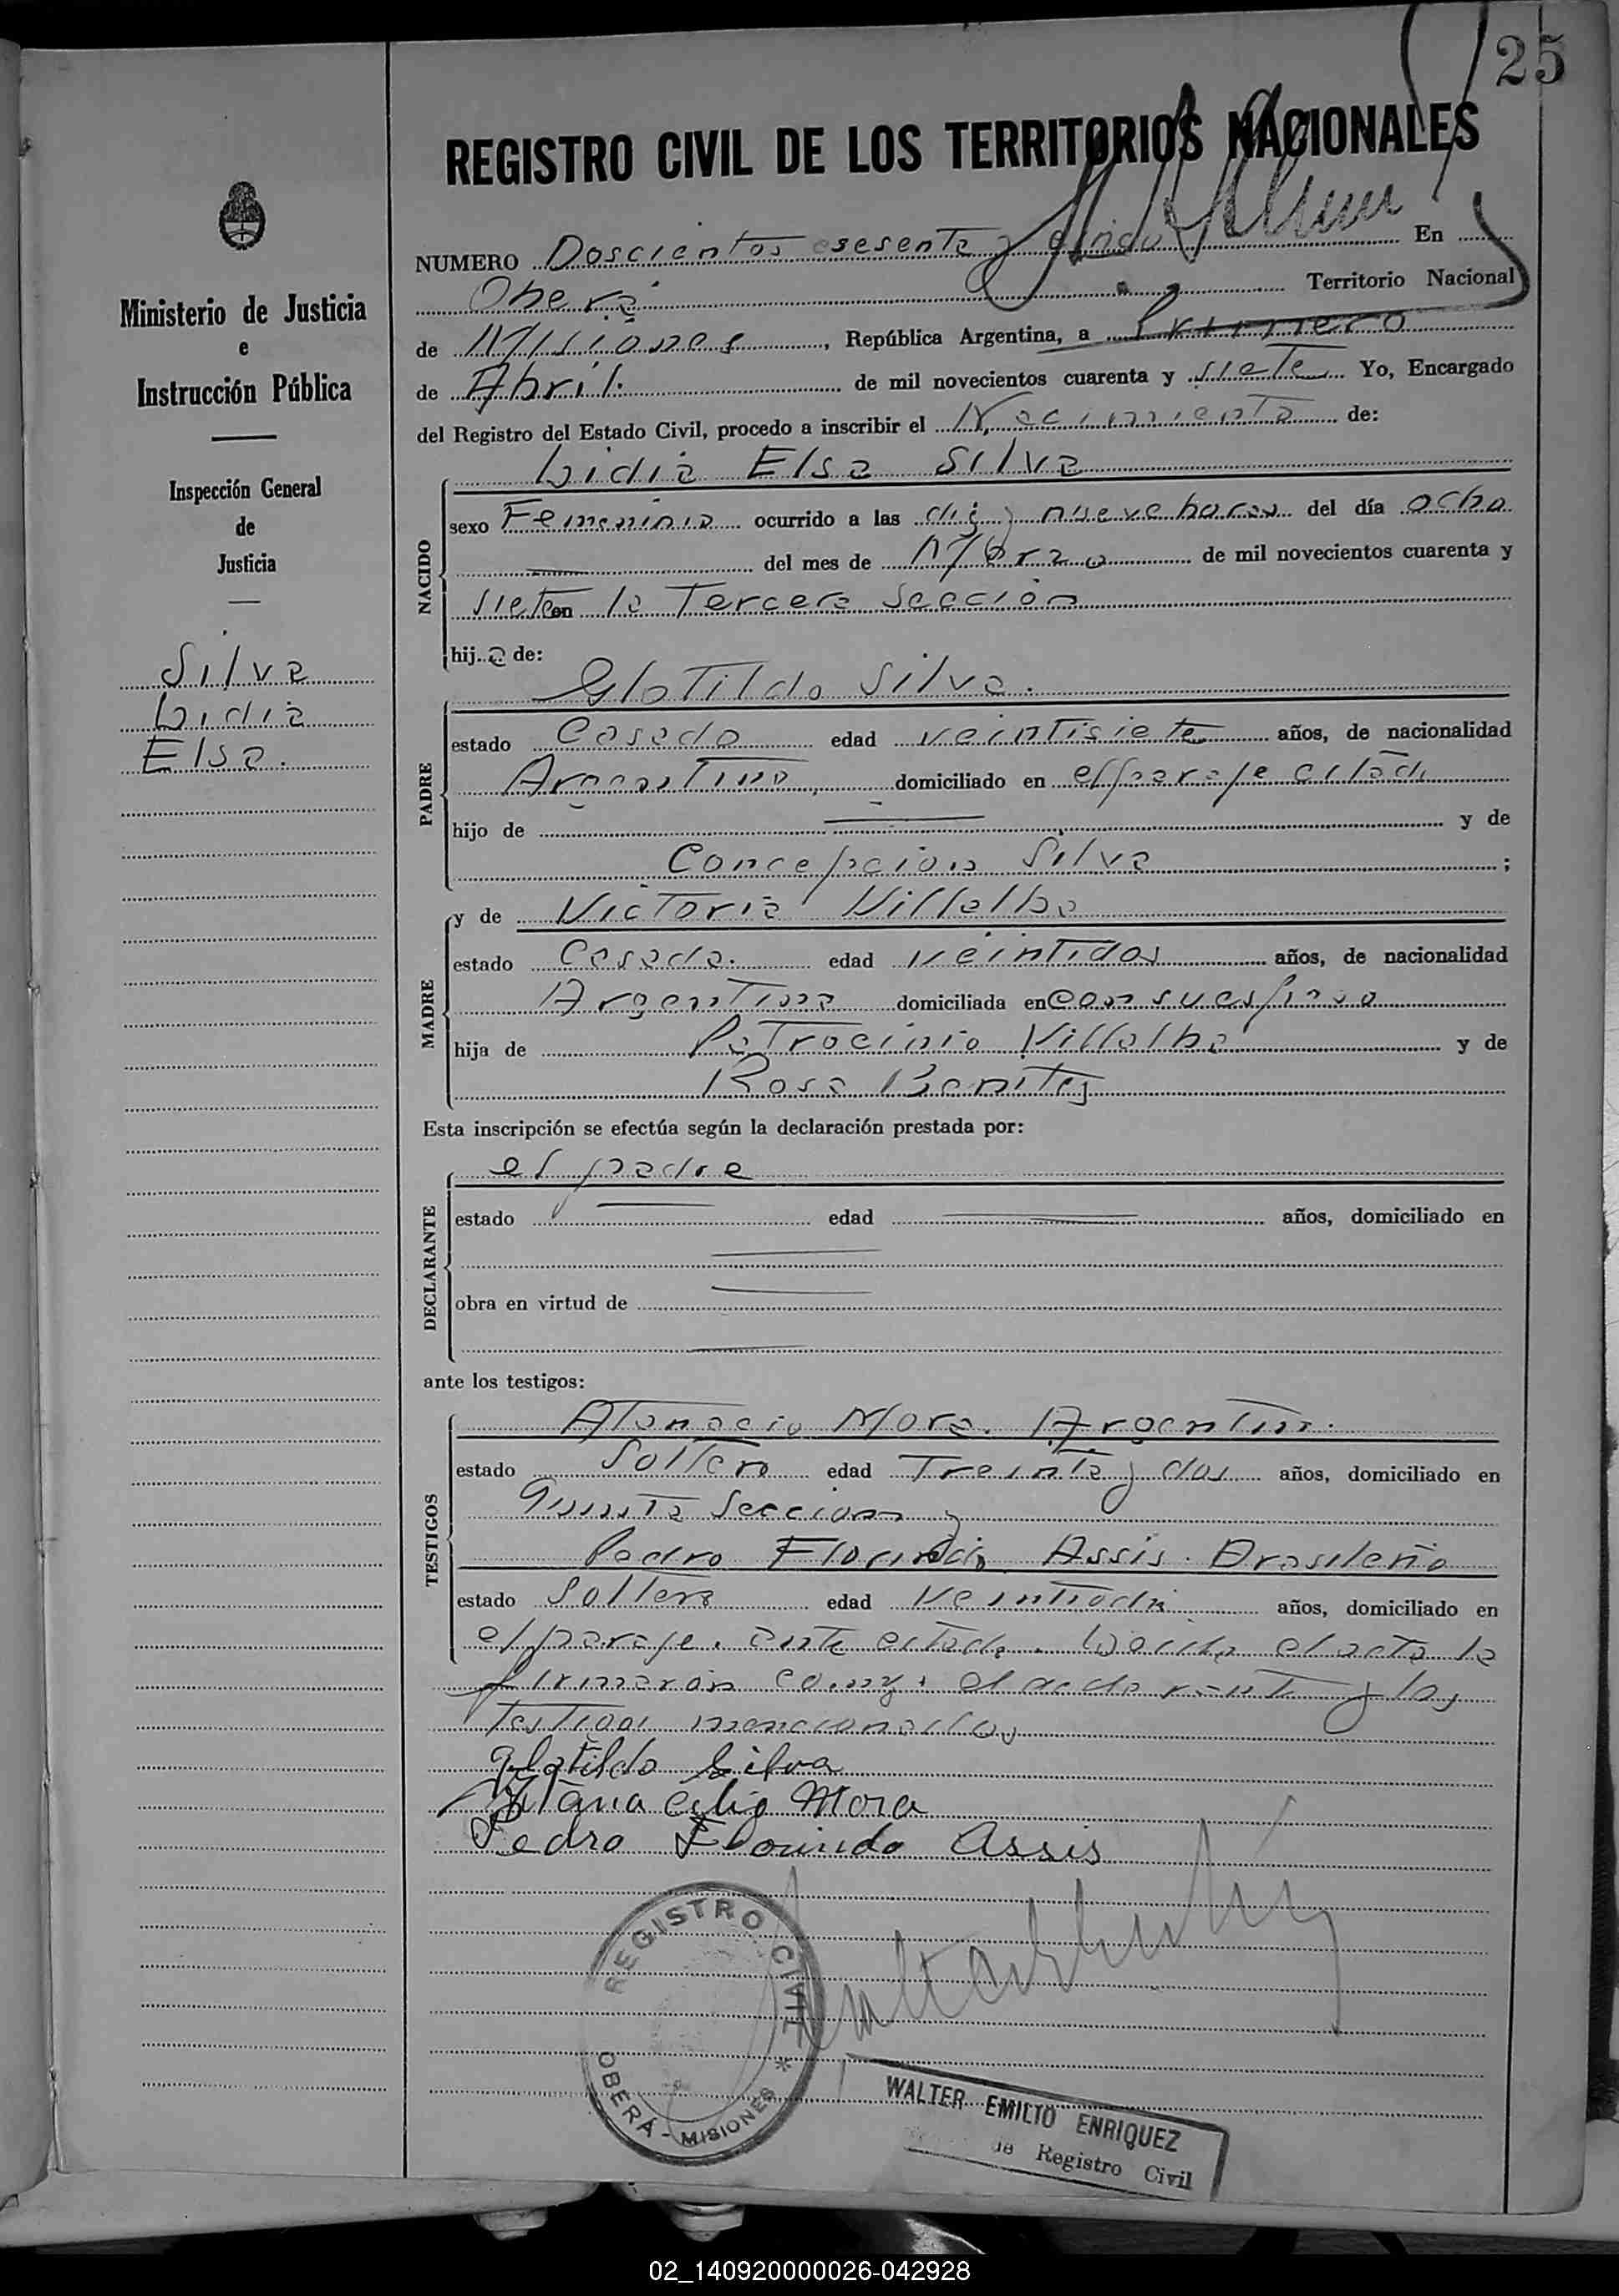 25
REGISTRO CIVIL DE LOS TERRITORIOS NACIONALES
NUMERO Doscientos sesenta y cinco En
Oberá Territorio Nacional
de Misiones, República Argentina, a Primero
de Abril. de mil novecientos cuarenta y siete Yo, Encargado
del Registro del Estado Civil, procedo a inscribir el Nacimiento de:
Ministerio de Justicia
e
Instrucción Pública
Inspección General
de
Justicia
Silva
Lidia
Elsa.
NACIDO
Lidia Elsa Silva
sexo Femenino ocurrido a las diez y nueve horas del día ocho
del mes de Marzo de mil novecientos cuarenta y
siete en la Tercera Sección
hij a de:
PADRE
Glotildo Silva.
estado Casado edad veintisiete años, de nacionalidad
Argentino, domiciliado en el paraje citado
hijo de y de
Concepcion Silva ;
MADRE
y de Victoria Villalba
estado Casada. edad veintidos años, de nacionalidad
Argentina domiciliada en con su esposo
hija de Patrocinio Villalba y de
Rosa Benitez
Esta inscripción se efectúa según la declaración prestada por:
DECLARANTE
el padre
estado edad años, domiciliado en
obra en virtud de
ante los testigos:
TESTIGOS
Atanacio Mora. Argentino.
estado Soltero edad Treinta y dos años, domiciliado en
Quinta Seccion y
Pedro Florindo Assis. Brasileño
estado Soltero edad años, domiciliado en
el paraje ante citado. Leida el acta la
firmaron el declarante y los
testigos mencionados
Glotildo Silva
Mora
Pedro Florindo Assis
REGISTRO CIVIL
* OBERÁ - MISIONES
WALTER EMILIO ENRIQUEZ
Registro Civil
02_140920000026-042928